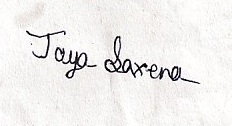 Jaya Saxena